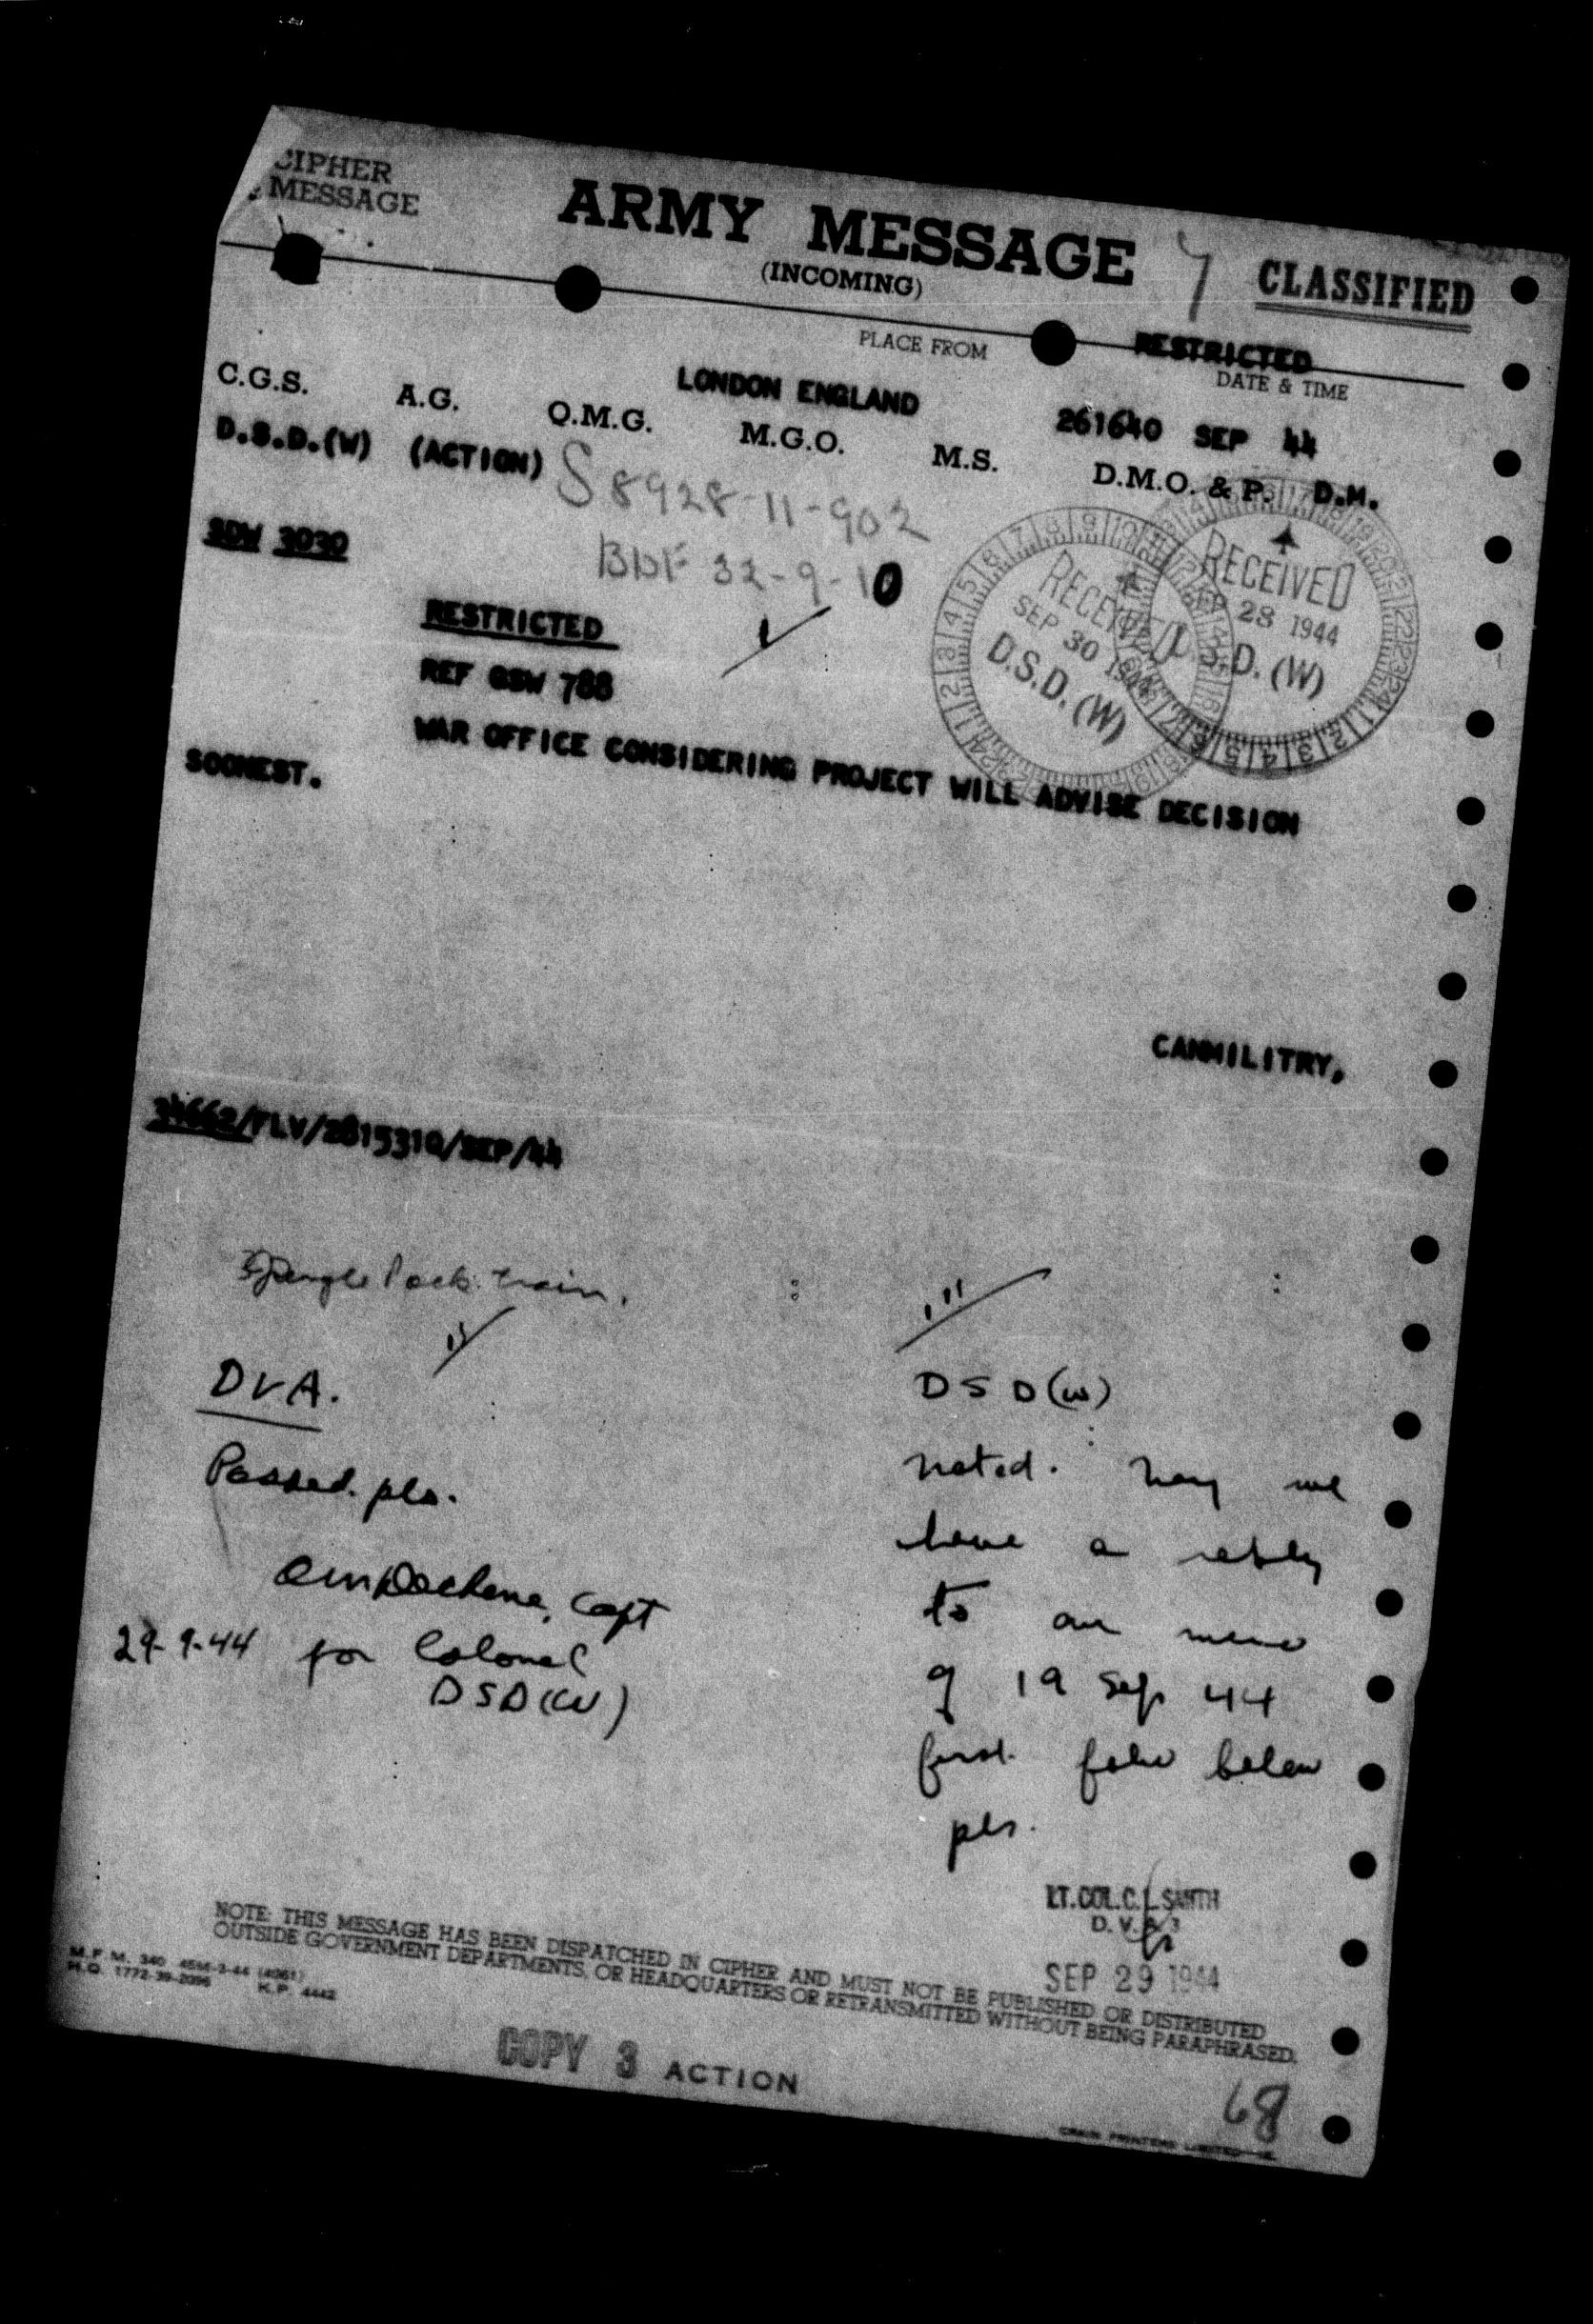 CIPHER
MESSAGE
ARMY MESSAGE
(INCOMING)
CLASSIFIED
RESTRICTED
PLACE FROM
DATE & TIME
LONDON ENGLAND
261640 SEP 44
C.G.S. A.G. Q.M.G. M.G.O. M.S. D.M.O. & P. D.M.
D.S.D.(W) (ACTION)
S 8928-11-902
SDW 3030
32-9-10
RECEIVED
SEP 30 1944
D.S.D. (W)
RECEIVED
28 1944
D.S.D. (W)
RESTRICTED
REF GSW 788
WAR OFFICE CONSIDERING PROJECT WILL ADVISE DECISION
SOONEST.
CANMILITRY,
34662/FLV/281531Q/SEP/44
Jungle Pack train.
DVA.
Passed. pls.
Capt
29-9-44 for Colonel
DSD(W)
DSD(W)
noted. May we
have a reply
to our memo
of 19 Sep 44
first folio below
pls.
LT.COL.C.L.SMITH
D.V.A.
SEP 29 1944
NOTE: THIS MESSAGE HAS BEEN DISPATCHED IN CIPHER AND MUST NOT BE PUBLISHED OR DISTRIBUTED
OUTSIDE GOVERNMENT DEPARTMENTS, OR HEADQUARTERS OR RETRANSMITTED WITHOUT BEING PARAPHRASED.
M.F.M. 340
H.Q. 1772-39-2096
K.P. 4442
COPY 3 ACTION
68